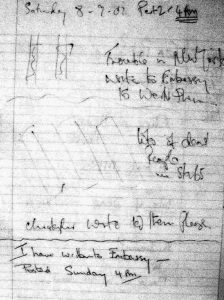 Saturday 8-9-01 Part 2 4 AM
Trouble in New York
write to Embassy
to Warn them
lots of dead
people
in Streets
christopher write to them Please
I have written to Embassy —
Posted Sunday 4 PM